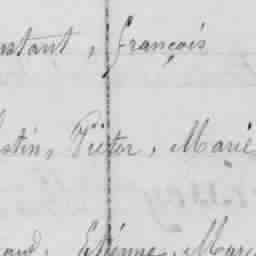 nstant, françois
stin, Victor, Marie
aud, Etienne, Marc